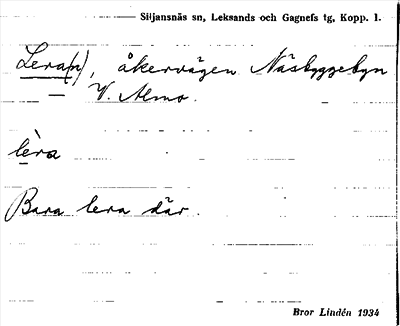 Siljansnäs sn, Leksands och Gagnefs tg, Kopp. l.
Lera(n), åkervägen Näsbyggebyn
V. Almo.
lèra
Bara lera där.
Bror Lindén 1934